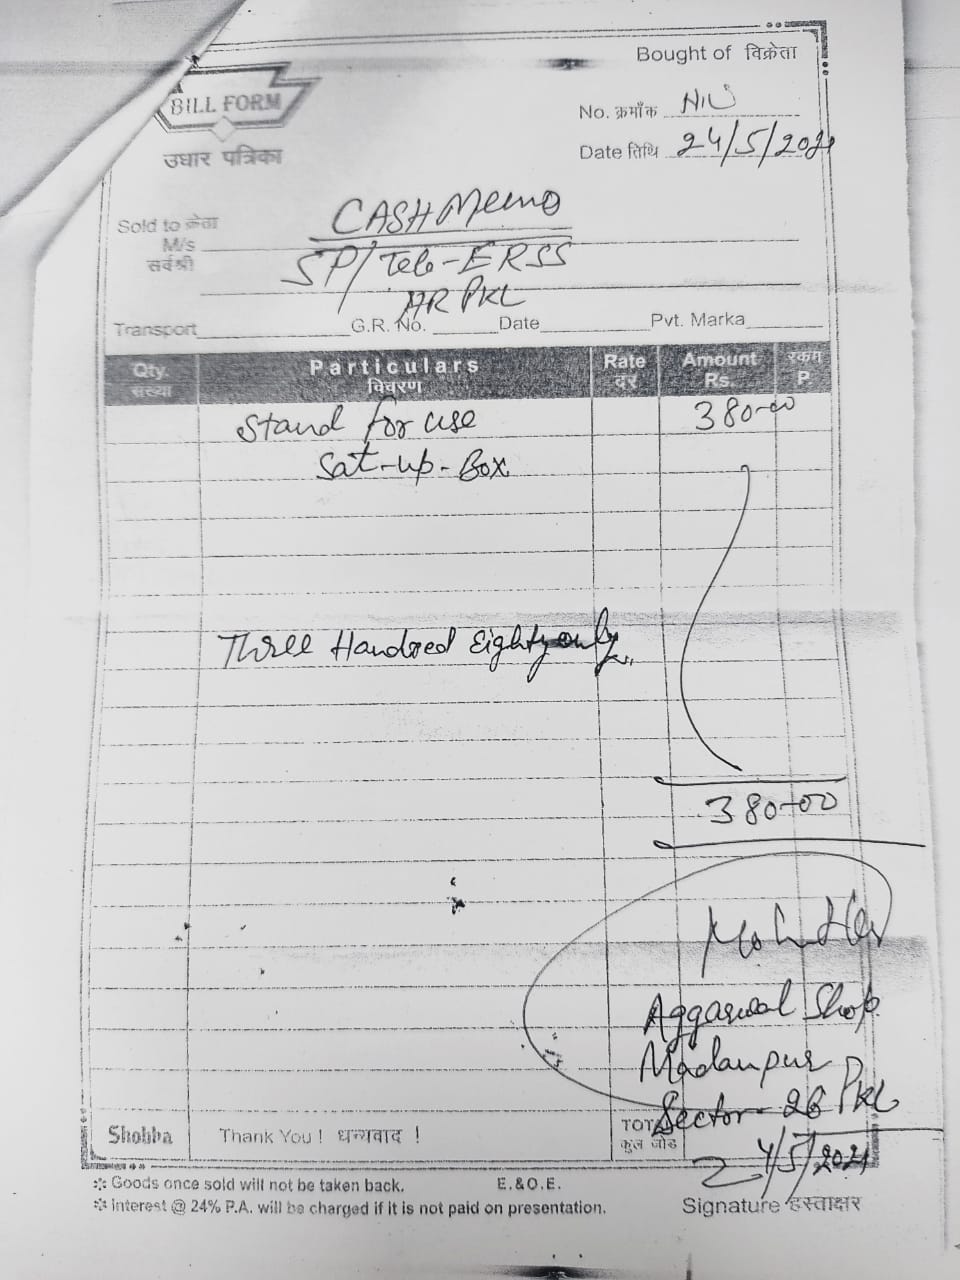 Bought of विक्रेता
BILL FORM
उधार पत्रिका
No. क्रमाँक NIL
Date तिथि 24/5/2021
CASH Memo
Sold to क्रेता
M/s SP/Tele-ERSS
सर्वश्री HR PKL
Transport G.R. No. Date Pvt. Marka
Qty. Particulars Rate Amount रकम
संख्या विवरण दर Rs. P.
Stand for use 380-00
Sat-up-Box
Three Handred Eighty only
380-00
Aggarwal Shop
Madanpur
Sector-26 PKL
24/5/2021
Shobha Thank You ! धन्यवाद ! TOTA
कुल जोड
⁘ Goods once sold will not be taken back. E.&O.E.
⁘ Interest @ 24% P.A. will be charged if it is not paid on presentation. Signature हस्ताक्षर